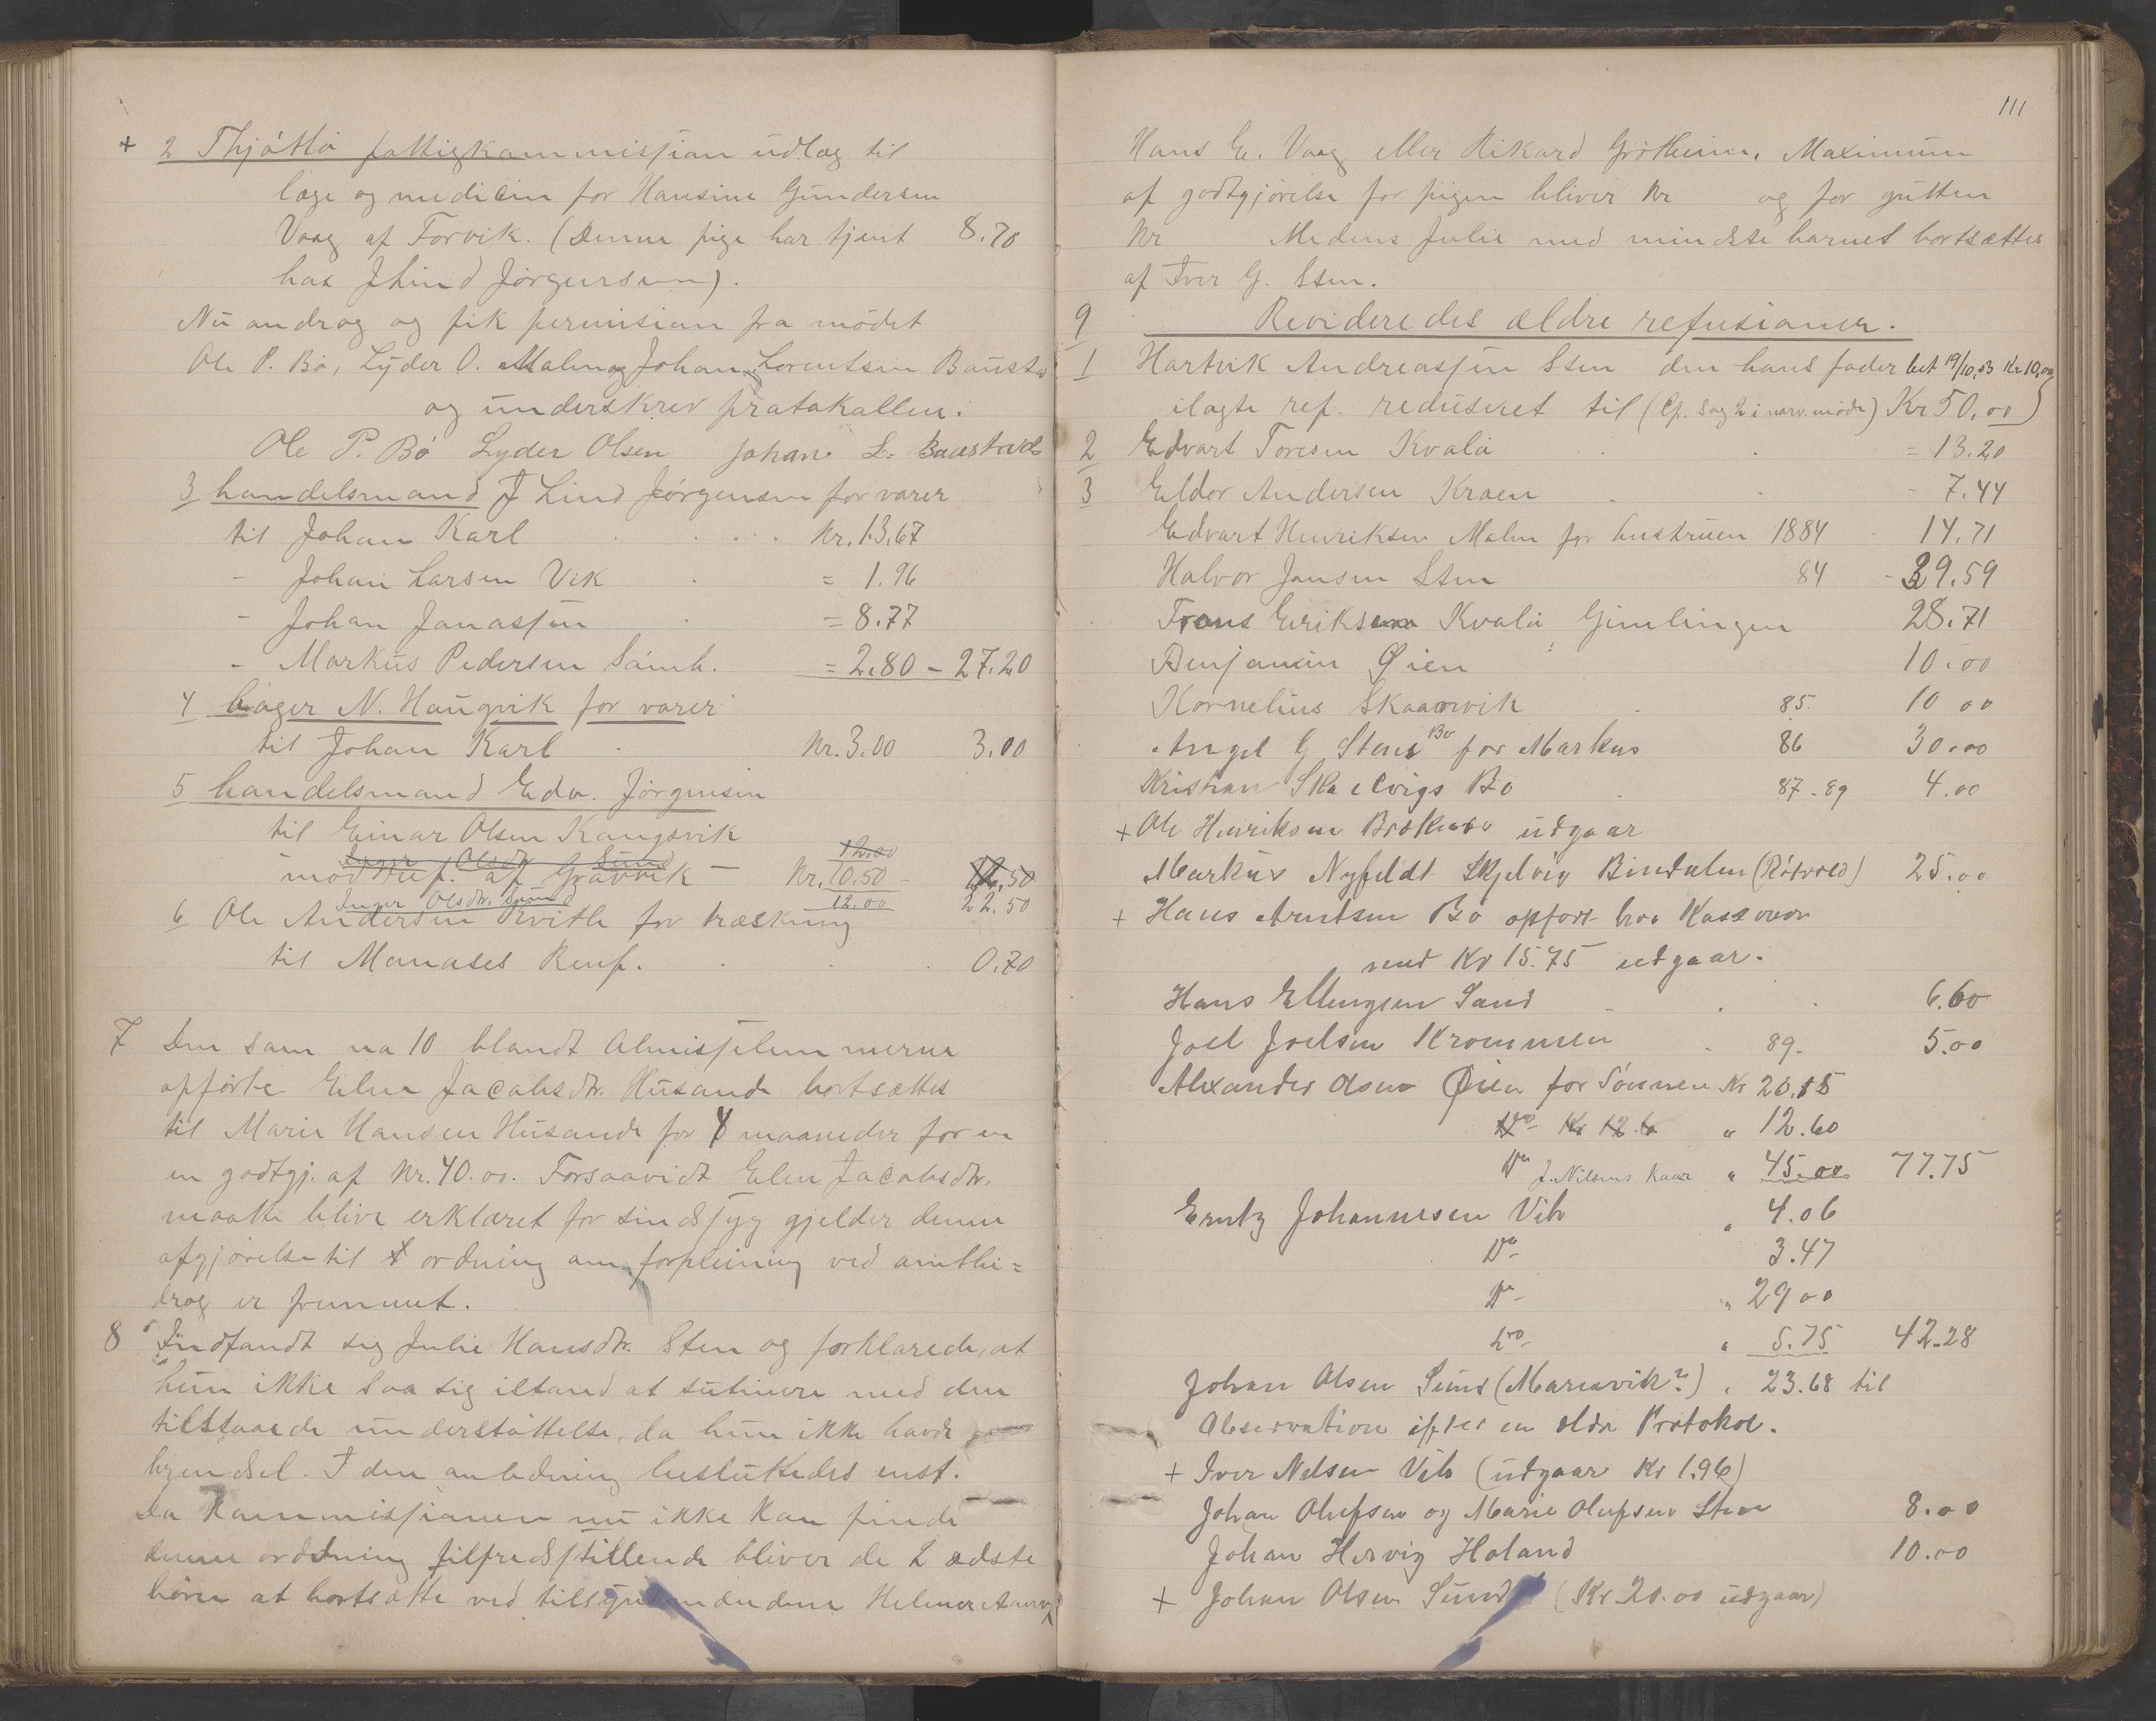 + 2 Thjøttø fattigkammissjon udlæg til
læge og medicin for Hansine Gundersen
Vaag af Forvik. (Denne pige har tjent 8.70
hos J Lind Jørgensen).
Nu androg og fik permision fra mødet
Ole P. Bø, Lyder O. Malm og Johan Lorentsen Baustad
og underskrev pratakallen.
Ole P. Bø Lyder Olsen Johan L. Baustad
3 handelsmand J Lind Jørgensen for varer
til Johan Karl Kr. 13.67
- Johan Larsen Vik = 1.96
- Johan Janassen = 8.77
- Markus Pedersen = 2.80 - 27.20
4 bager N. Haugvik for varer
til Johan Karl Kr. 3.00 3.00
5 handelsmand Edv. Jørgensen
til Einar Olsen Kangsvik 12.00
Inger Olsdr Sund
mod ref. af Grønvik Kr. 10.50 - 12.50
Inger Olsdr. Sund 12.00 22.50
6 Ole Andersen for træskning
til Manases Renf. 0.70
7 Den sam na 10 blandt Almisselemmerne
opførte Elen Jacobsdtr. Husande bortsættes
til Marie Hansen Husande for maaneder for en
en godtgj. af Kr. 40.00. Forsaavidt Elen Jacobsdtr.
maatte blive erklæret for sindssyg gjelder denne
afgjørelse til ordning am forpleining ved amtbi=
drag er fremmet.
8 Indfandt sig Julie Hansdtr. Sten og forklarede, at
hun ikke saa sig istand at med den
tilstaaede understøttelse, da hun ikke havde
brændsel. I den anledning besluttedes enst.
Da Kammissjonen nu ikke kan finde
denne ordning tilfredsstillende bliver de 2 ædste
børn at bortsætte ved tilsynsmændene Helmer
111
Hans E. Vaag eller Rikard Grøtheim. Maximum
af godtgjørelse for pigen bliver Kr og for gutten
Kr Medens Julie med mindste barnet bortsættes
af Iver G. Sten.
9 Revideredes ældre refusioner.
1 Hartvik Andreassen Sten den hans fader bet 19/10.83 Kr 10,00
ilagte ref. reduseret til (Cf. Sag 2 i nærv. møde) Kr 50.00
2 Edvart Toresen Kvalø = 13.20
3 Eldor Andersen Kroen - 7.44
Edvart Henriksen Malm for hustruen 1884 - 14.71
Halvor Jansen Sten 84 - 39.59
Frans Eriksen Kvalø Gimlingen 28.71
Benjamin Øien 10.00
Kornelius Skaarvik 85. 10 00
Angel G Stens Bø for Markus 86 30.00
Kristian Skaelvigs Bø 87-89 4.00
+ Ole Henriksen udgaar
Markus Nyfeldt Skjelvig Bindalen (Røtvold) 25.00
+ Hans Arntsen Bø opført hos Kasserer
med Kr 15.75 udgaar.
Hans Ellingsen Sand 6.60
Joel Joelsen Krommen 89. 5.00
Alexander Olsen Øien for Sønnen Kr 20.15
Do Kr 12.60 " 12.60
Do J. Nilsens Kaar " 45.00 77.75
Erntz Johannesen Vik " 4.06
Do 3.47
Do " 29 00
Do " 5.75 42.28
Johan Olsen Sund (Maresvik?) " 23.68 til
Observation efter en ældre Protokol.
+ Iver Nelsen Vik (udgaar Kr 1.96)
Johan Olufsen og Marie Olufsen Sten 8.00
Johan Hervig Holand 10.00
+ Johan Olsen Sund (Kr. 20.00 udgaar)